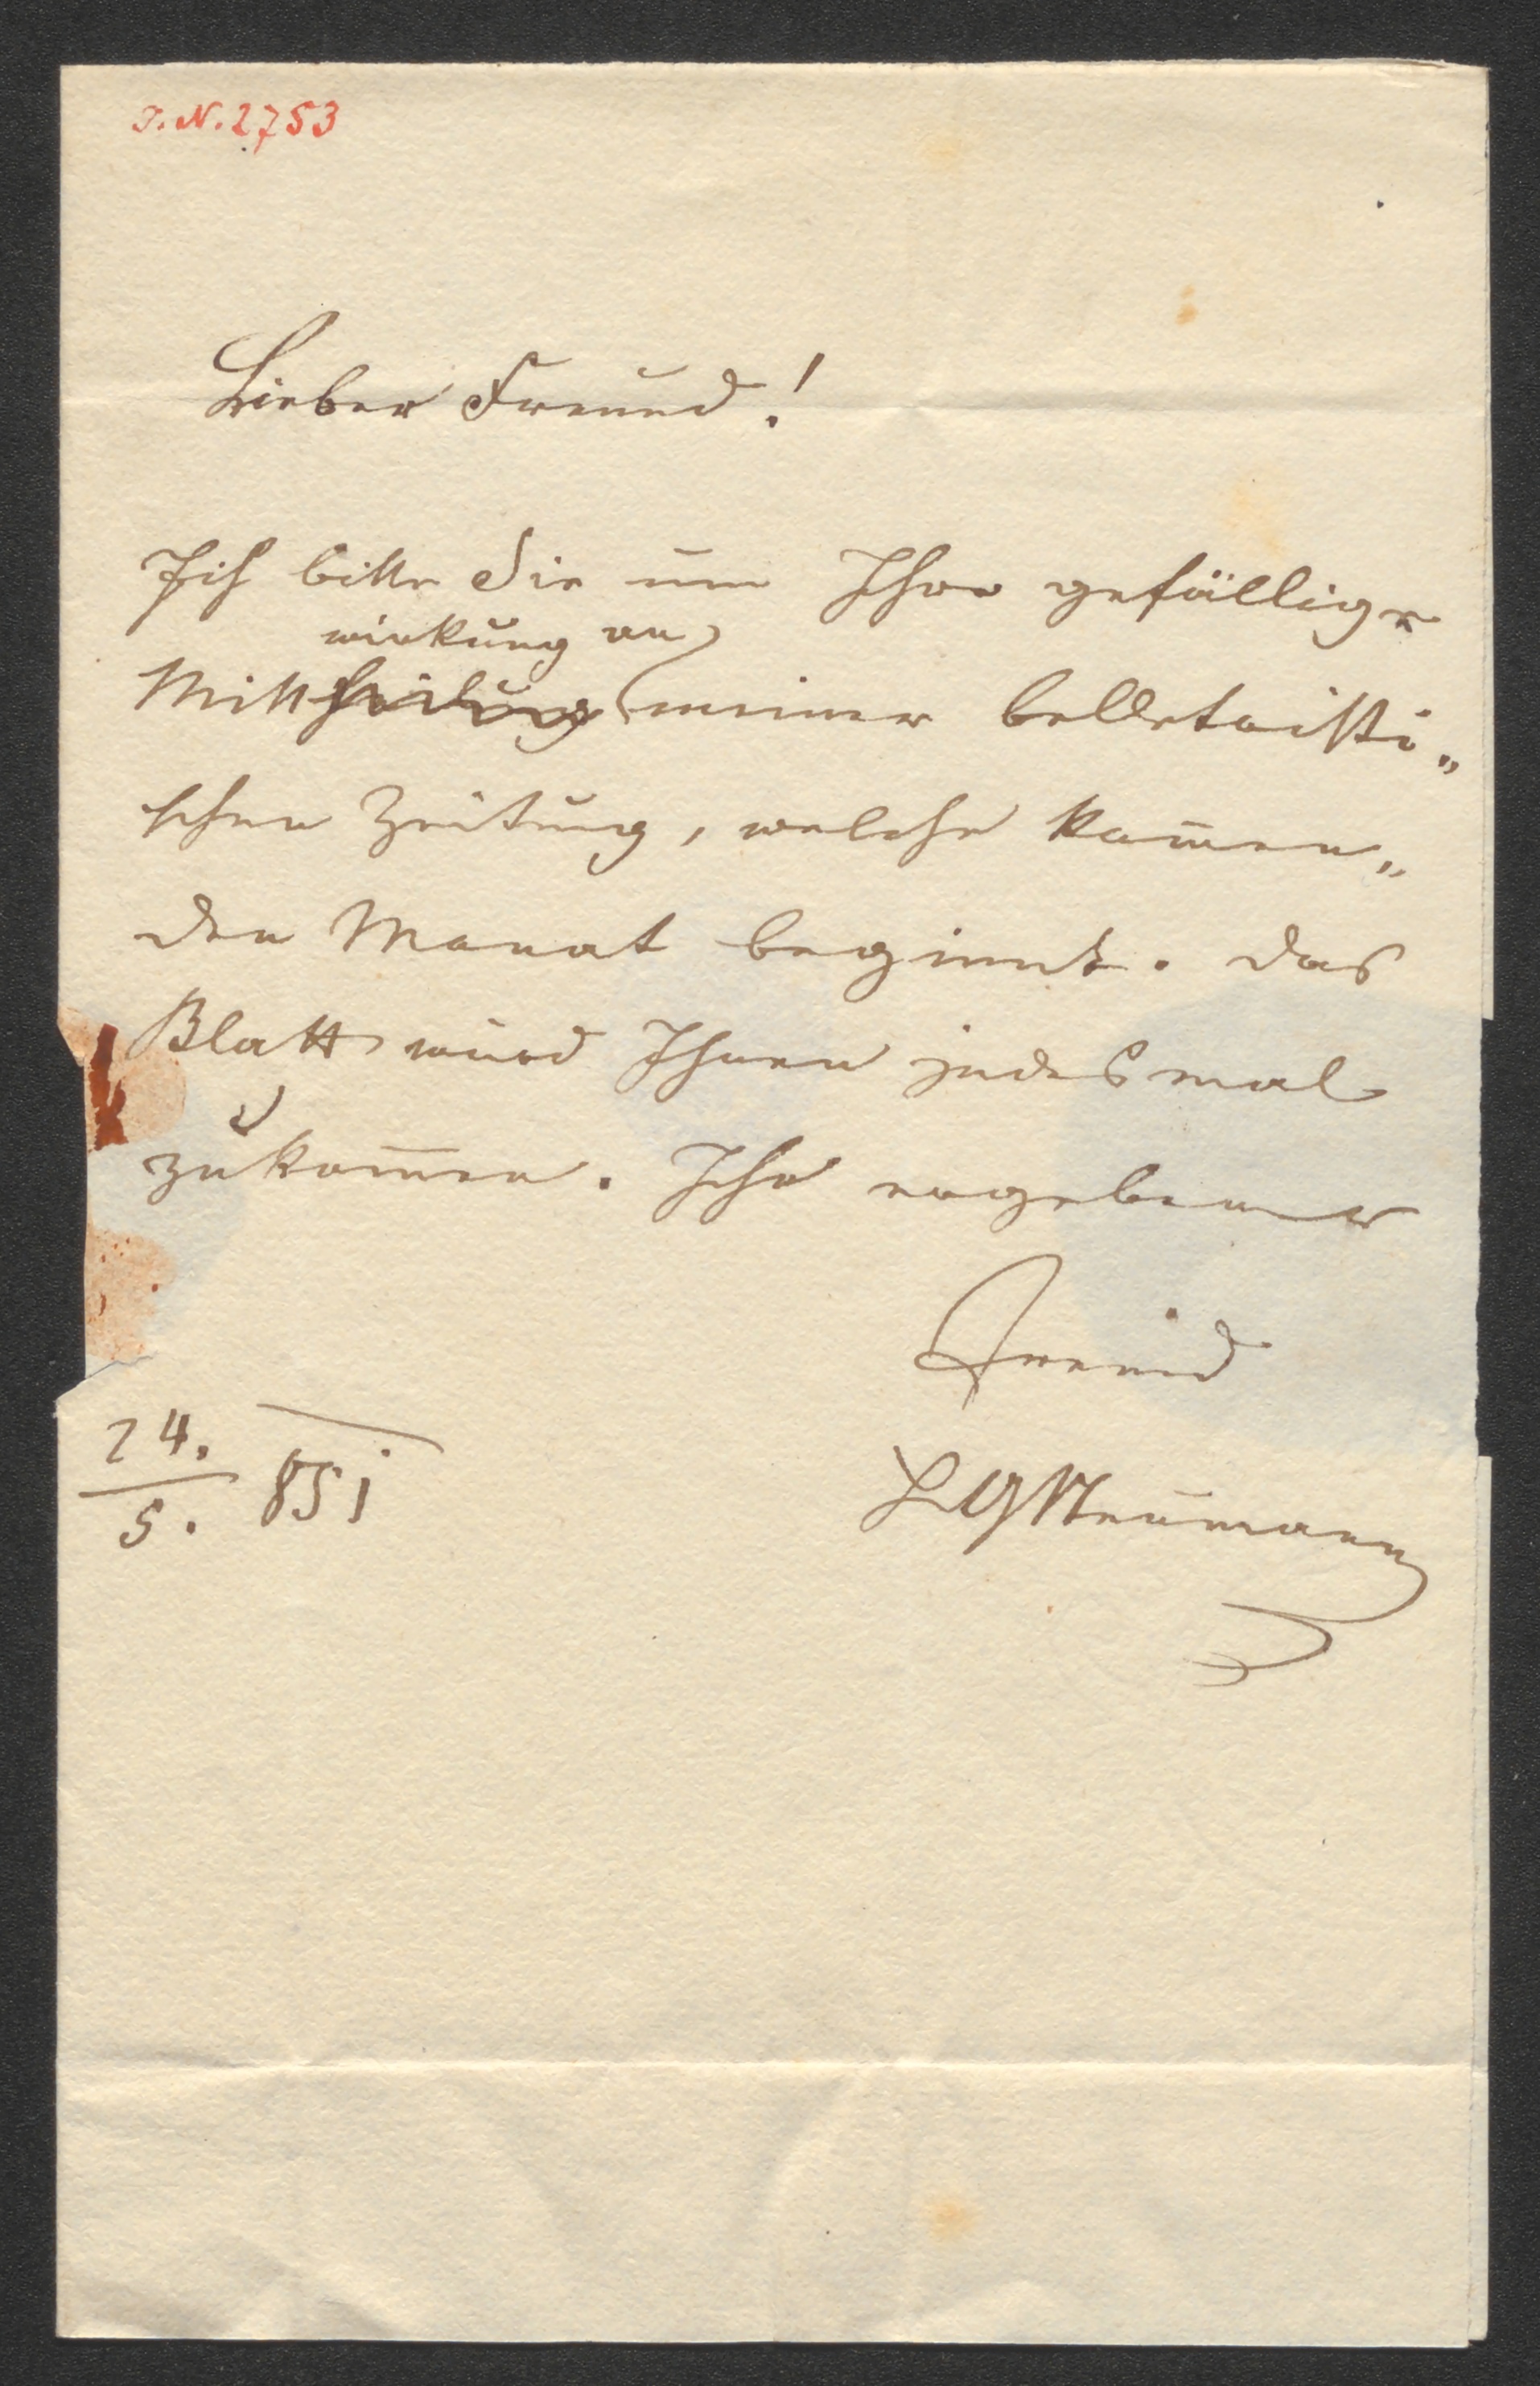 I.N. 2753
Lieber Freund!
Ich bitte Sie um Ihre gefällige
wirkung an
Mittheilung meiner belletristi„
schen Zeitung, welche kom̅en„
den Monat beginnt. Das
Blatt wird Ihnen jedesmal
zukom̅en. Ihr ergebener
Freund
24. / 5. 851
LGNeumann